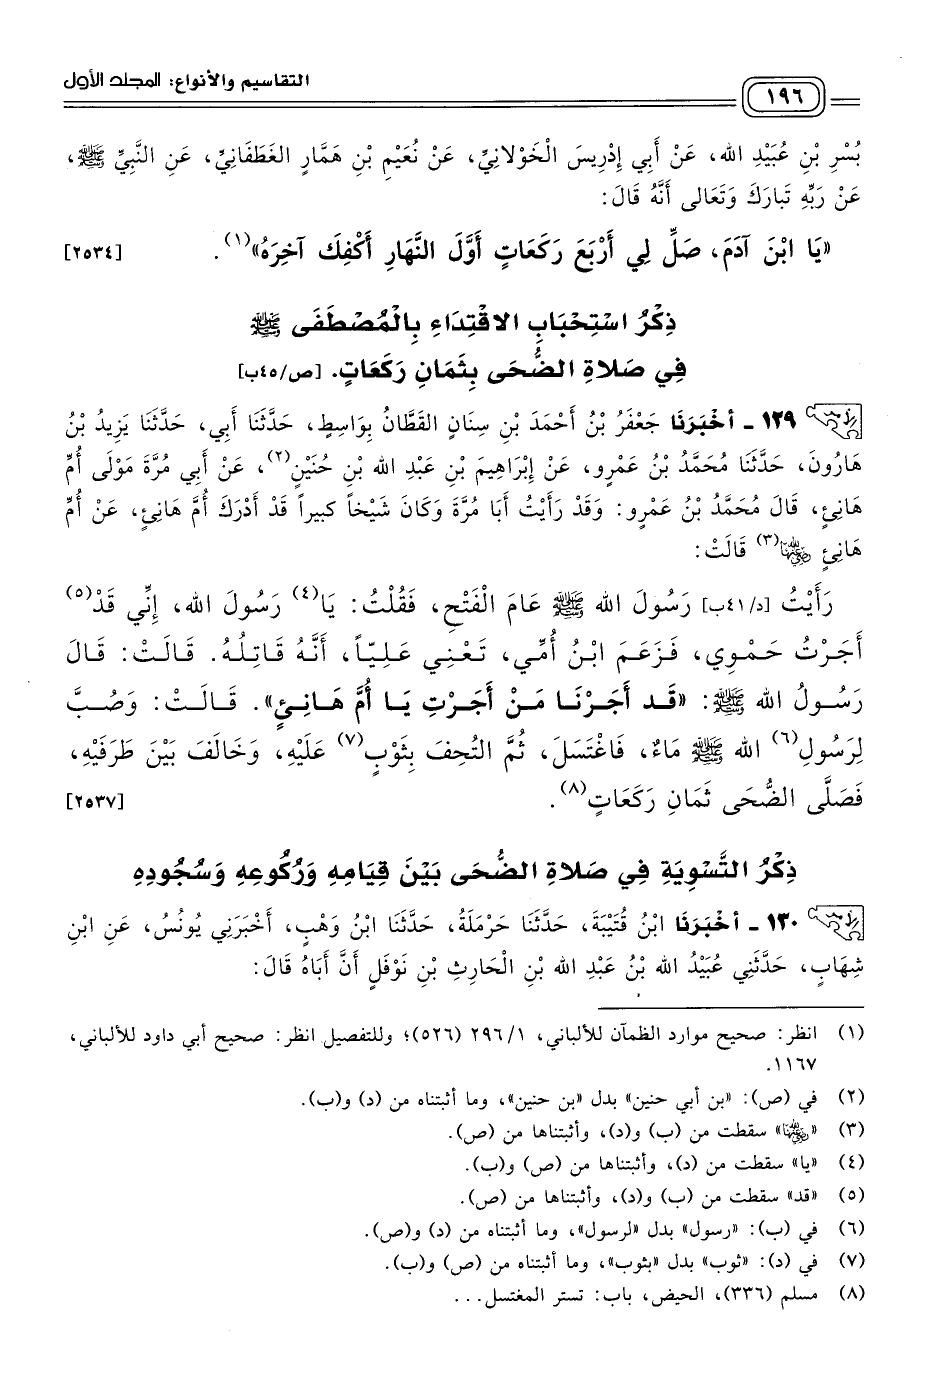 ١٩٦
التقاسيم والأنواع: المجلد الأول
بُسْرِ بْنِ عُبَيْدِ الله، عَنْ أَبِي إِدْرِيسَ الْخَوْلانِيِّ، عَنْ نُعَيْمِ بْنِ هَمَّارِ الغَطَفَانِيِّ، عَنِ النَّبِيِّ ﷺ،
عَنْ رَبِّهِ تَبَارَكَ وَتَعَالى أَنَّهُ قَالَ:
«يَا ابْنَ آدَمَ، صَلِّ لِي أَرْبَعَ رَكَعَاتٍ أَوَّلَ النَّهَارِ أَكْفِكَ آخِرَهُ»(١). [٢٥٣٤]
ذِكْرُ اسْتِحْبَابِ الاقْتِدَاءِ بِالْمُصْطَفَى ﷺ
فِي صَلاةِ الضُّحَى بِثَمَانِ رَكَعَاتٍ. [ص/٤٥ب]
١٢٩ ـ أخْبَرَنَا جَعْفَرُ بْنُ أَحْمَدَ بْنِ سِنَانٍ القَطَّانُ بِوَاسِطٍ، حَدَّثَنَا أَبِي، حَدَّثَنَا يَزِيدُ بْنُ
هَارُونَ، حَدَّثَنَا مُحَمَّدُ بْنُ عَمْرٍو، عَنْ إِبْرَاهِيمَ بْنِ عَبْدِ الله بْنِ حُنَيْنٍ(٢)، عَنْ أَبِي مُرَّةَ مَوْلَى أُمِّ
هَانِئٍ، قَالَ مُحَمَّدُ بْنُ عَمْرٍو: وَقَدْ رَأَيْتُ أَبَا مُرَّةَ وَكَانَ شَيْخاً كَبِيراً قَدْ أَدْرَكَ أُمَّ هَانِئٍ، عَنْ أُمِّ
هَانِئٍ رضي الله عنها(٣) قَالَتْ:
رَأَيْتُ [د/٤١ب] رَسُولَ الله ﷺ عَامَ الْفَتْحِ، فَقُلْتُ: يَا(٤) رَسُولَ الله، إِنِّي قَدْ(٥)
أَجَرْتُ حَمْوِي، فَزَعَمَ ابْنُ أُمِّي، تَعْنِي عَلِيّاً، أَنَّهُ قَاتِلُهُ. قَالَتْ: قَالَ
رَسُولُ الله ﷺ: «قَد أَجَرْنَا مَنْ أَجَرْتِ يَا أُمَّ هَانِئٍ». قَالَتْ: وَصُبَّ
لِرَسُولِ(٦) الله ﷺ مَاءٌ، فَاغْتَسَلَ، ثُمَّ التَّحِفَ بِثَوْبٍ(٧) عَلَيْهِ، وَخَالَفَ بَيْنَ طَرَفَيْهِ،
فَصَلَّى الضُّحَى ثَمَانِ رَكَعَاتٍ(٨). [٢٥٣٧]
ذِكْرُ التَّسْوِيَةِ فِي صَلاةِ الضُّحَى بَيْنَ قِيَامِهِ وَرُكُوعِهِ وَسُجُودِهِ
١٣٠ ـ أخْبَرَنَا ابْنُ قُتَيْبَةَ، حَدَّثَنَا حَرْمَلَةُ، حَدَّثَنَا ابْنُ وَهْبٍ، أَخْبَرَنِي يُونُسُ، عَنِ ابْنِ
شِهَابٍ، حَدَّثَنِي عُبَيْدُ الله بْنُ عَبْدِ الله بْنِ الْحَارِثِ بْنِ نَوْفَلٍ أَنَّ أَبَاهُ قَالَ:
(١) انظر: صحيح موارد الظمآن للألباني، ٢٩٦/١ (٥٢٦)؛ وللتفصيل انظر: صحيح أبي داود للألباني،
١١٦٧.
(٢) في (ص): «بن أبي حنين» بدل «بن حنين»، وما أثبتناه من (د) و(ب).
(٣) «رضي الله عنها» سقطت من (ب) و(د)، وأثبتناها من (ص).
(٤) «يا» سقطت من (د)، وأثبتناها من (ص) و(ب).
(٥) «قد» سقطت من (ب) و(د)، وأثبتناها من (ص).
(٦) في (ب): «رسول» بدل «لرسول»، وما أثبتناه من (د) و(ص).
(٧) في (د): «ثوب» بدل «بثوب»، وما أثبتناه من (ص) و(ب).
(٨) مسلم (٣٣٦)، الحيض، باب: تستر المغتسل...